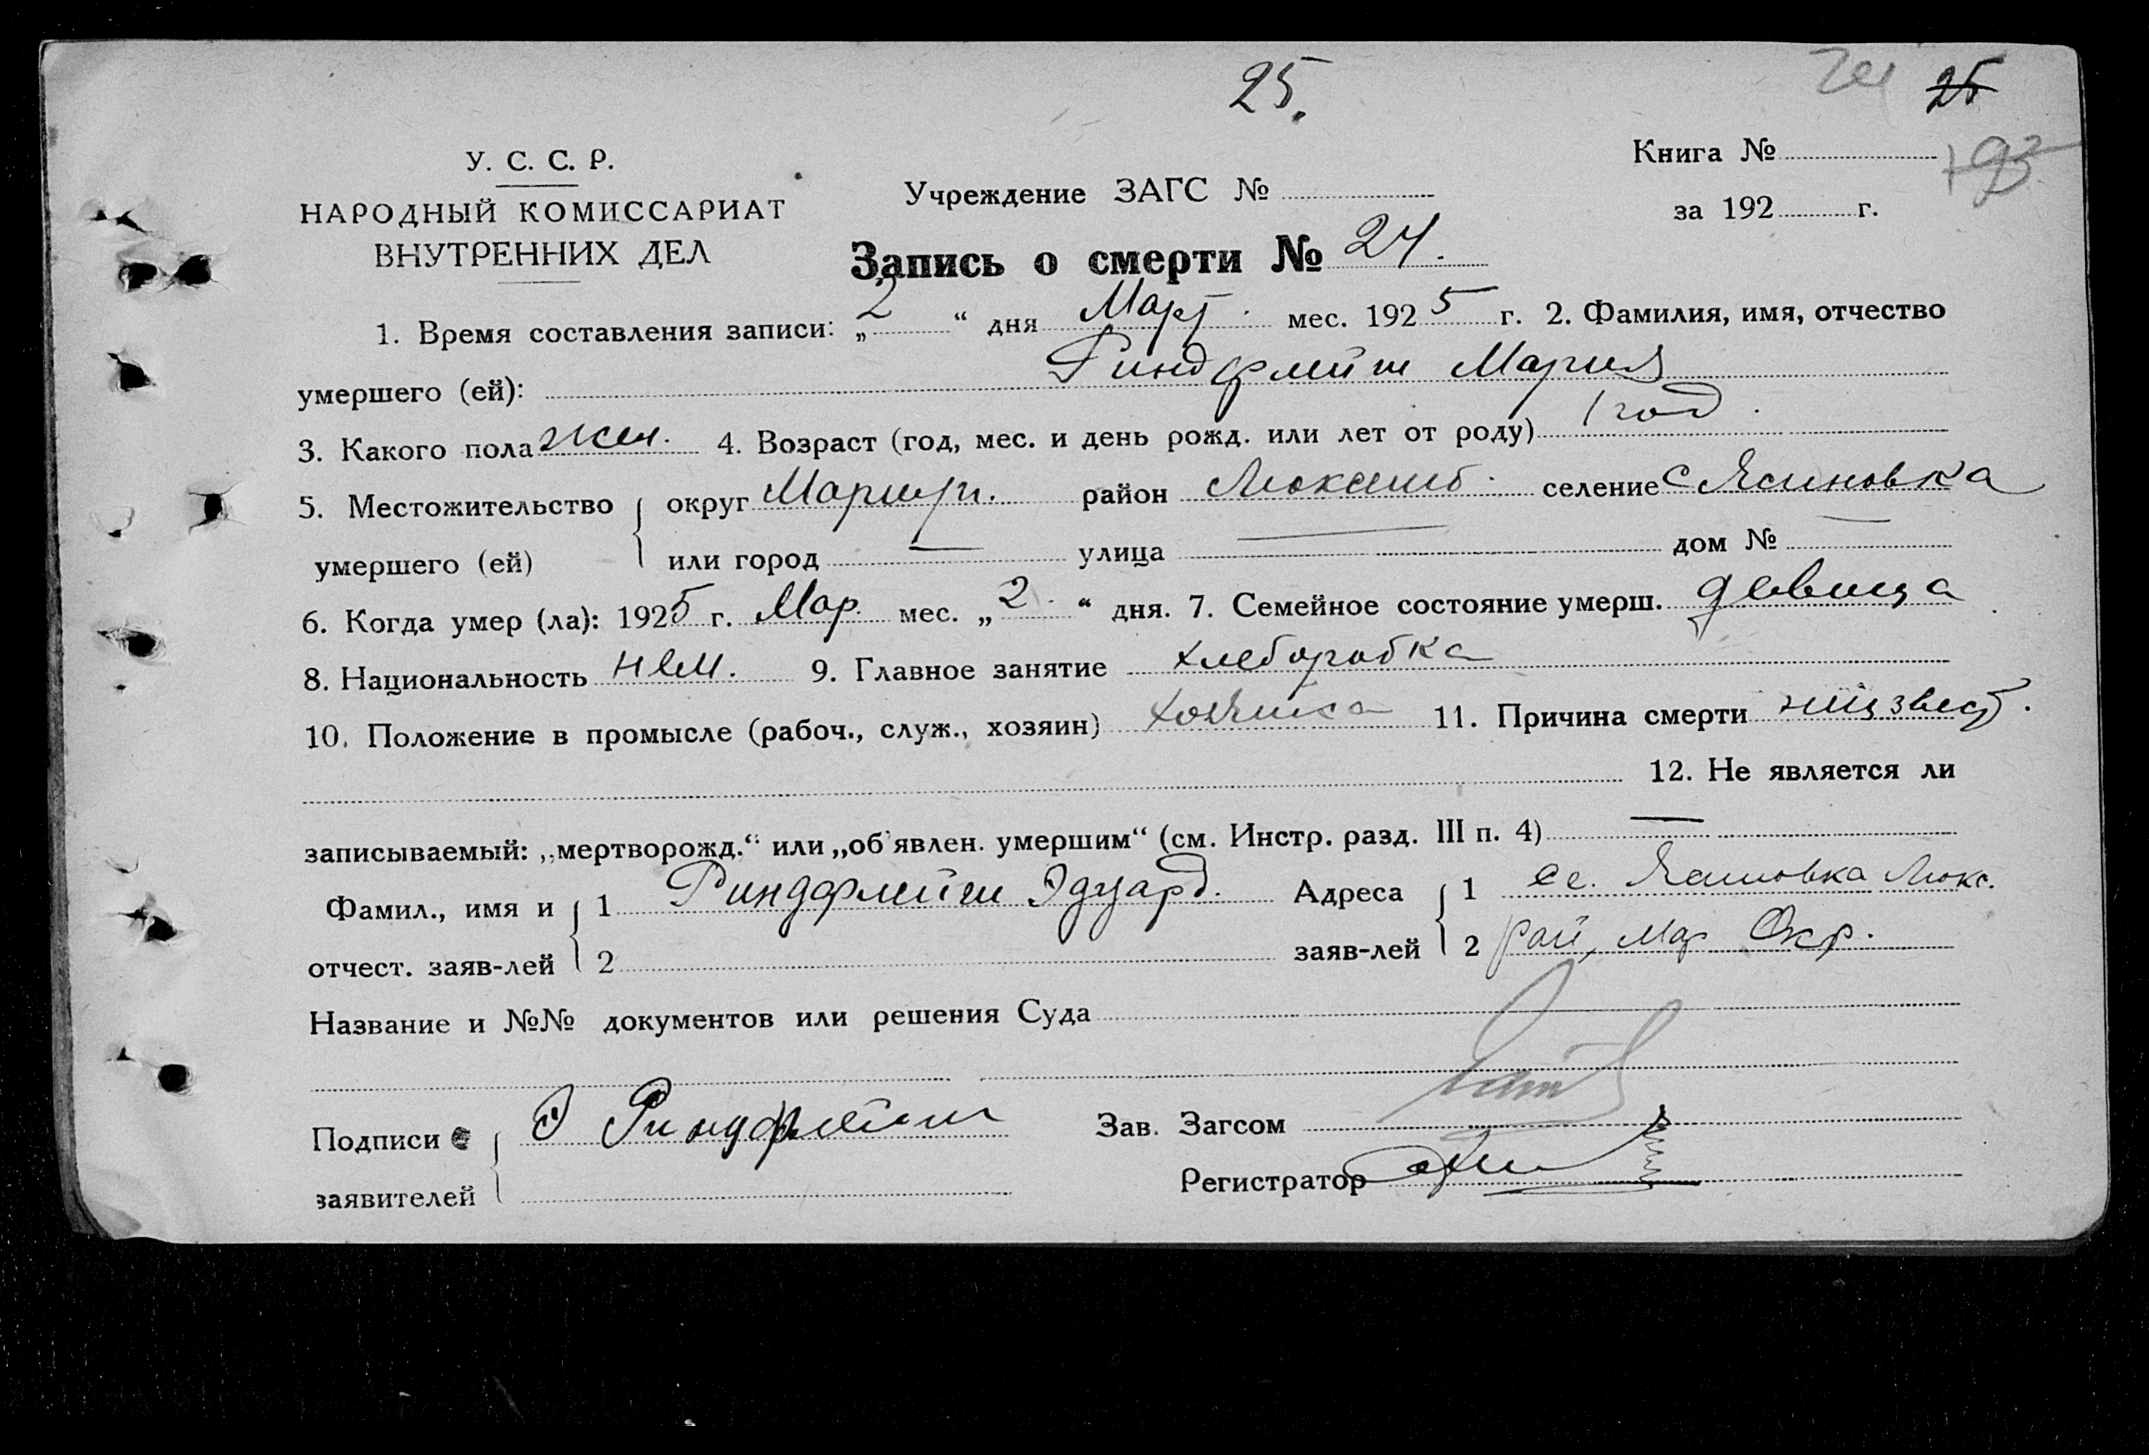 25.
24 25
У. С. С. Р.
НАРОДНЫЙ КОМИССАРИАТ
ВНУТРЕННИХ ДЕЛ
Учреждение ЗАГС №
Книга №
за 192 г.
Запись о смерти № 24.
1. Время составления записи: „ 2 “ дня Март. мес. 1925 г. 2. Фамилия, имя, отчество
умершего (ей): Риндфлейш Мария
3. Какого пола жен. 4. Возраст (год, мес. и день рожд. или лет от роду) 1 год.
5. Местожительство умершего (ей) округ Мариуп. район Люксемб. селение с Ясиновка
или город — улица — дом № —
6. Когда умер (ла): 1925 г. Мар. мес. „ 2. “ дня. 7. Семейное состояние умерш. девица
8. Национальность нем. 9. Главное занятие хлеборобка
10. Положение в промысле (рабоч., служ., хозяин) хозяйка 11. Причина смерти неизвест.
12. Не является ли
записываемый: „мертворожд.“ или „об'явлен. умершим“ (см. Инстр. разд. III п. 4) —
Фамил., имя и отчест. заяв-лей 1 Риндфлейш Эдуард. Адреса заяв-лей 1 се. Ясиновка Люкс.
2 2 рай, Мар Окр.
Название и №№ документов или решения Суда
Подписи заявителей Э Риндфлейш Зав. Загсом
Регистратор